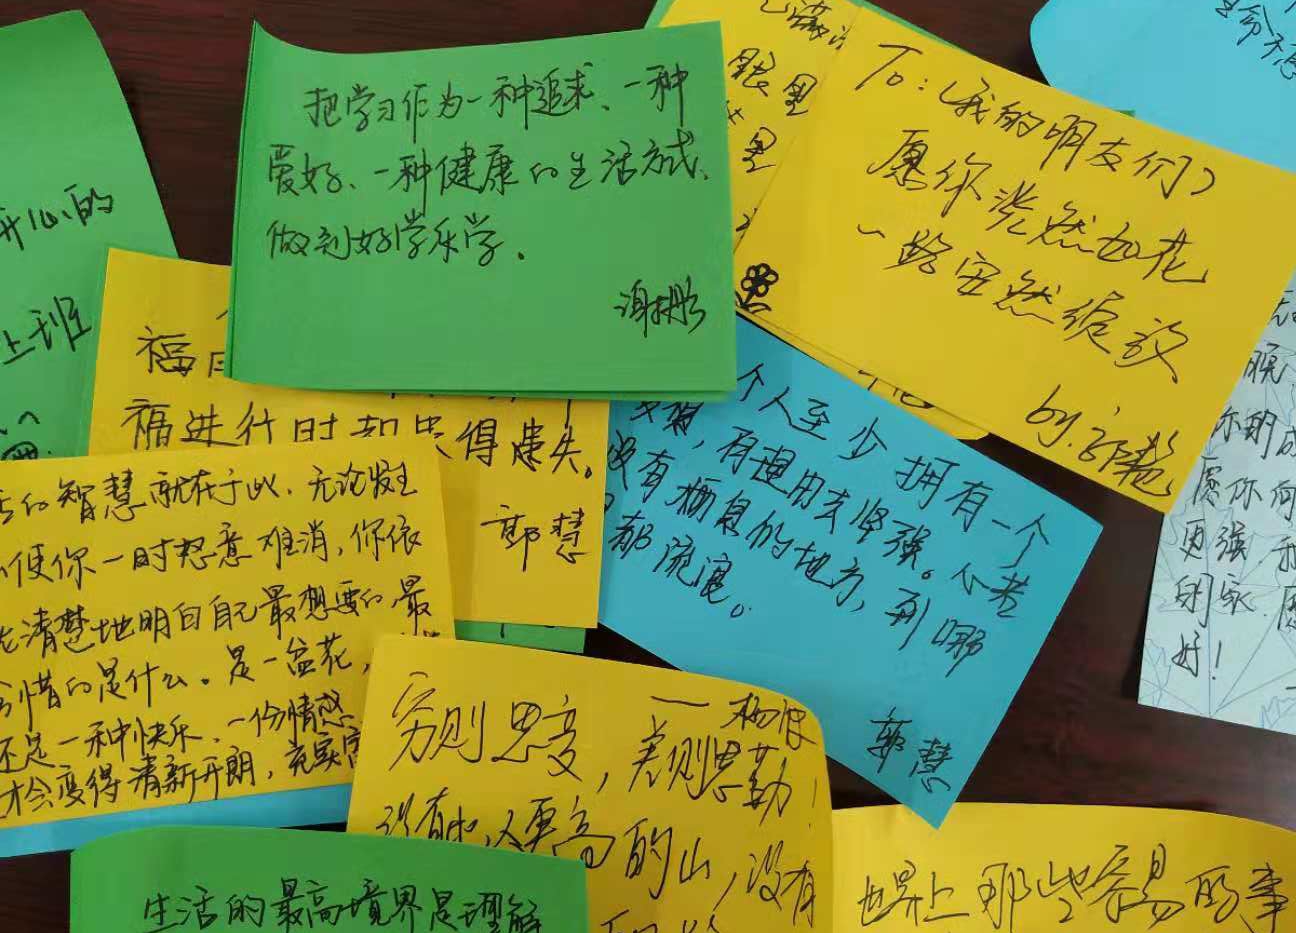 把学习作为一种追求、一种
爱好、一种健康的生活方式、
做到好学乐学。
To:(我的朋友们)
愿你淡然如花
一路安然绽放
眼里
里
开心的
上班
福
福进行时却患得患失。
郭慧
个人至少拥有一个
梦想,有理由去坚强。心若
没有栖息的地方,到哪
都流浪。
郭慧
的智慧就在于此.无论发生
使你一时怒意难消,你依
清楚地明白自己最想要的.最
惜的是什么。是一盆花,
还是一种快乐.一份情感
才会变得清新开朗,充实
穷则思变,差则思勤!
没有比人更高的山,没有
生活的最高境界是理解
世界上那些容易的事
生命不
你的成
愿你何
更强
好!